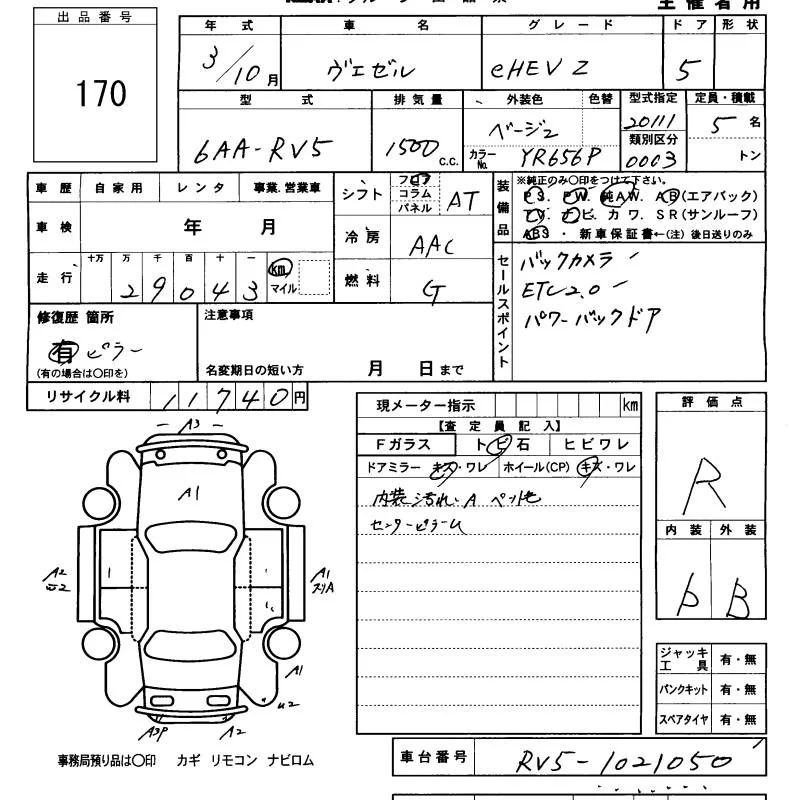 主催者用
出品番号
170
年式 車名 グレード ドア 形状
3/10月 ヴェゼル eHEV Z 5
型式 排気量 外装色 色替 型式指定 定員・積載
6AA-RV5 1500 C.C. ベージュ 20111 5名
カラーNo. YR656P 類別区分 0003 トン
車歴 自家用 レンタ 事業.営業車
シフト フロア コラム パネル AT
装備品 ※純正のみ〇印をつけて下さい。
PS. PW. 純AW. AB(エアバック)
TV. ナビ. カワ. SR(サンルーフ)
ABS・新車保証書←(注)後日送りのみ
車検 年 月
冷房 AAC
走行 十万 万 千 百 十 一 km マイル
29043
燃料 G
セールスポイント
バックカメラ
ETC2.0
パワーバックドア
修復歴 箇所
有 ピラー
(有の場合は〇印を)
注意事項
名変期日の短い方 月 日まで
リサイクル料 11740円
現メーター指示 km
【査定員記入】
Fガラス トビ石 ヒビワレ
ドアミラー キズ・ワレ ホイール(CP) キズ・ワレ
内装 汚れ、A
センターピラー
評価点
R
内装 外装
B
ジャッキ工具 有・無
パンクキット 有・無
スペアタイヤ 有・無
A3
A1
A2
A1
A1
A2
事務局預り品は〇印 カギ リモコン ナビロム
車台番号 RV5-1021050